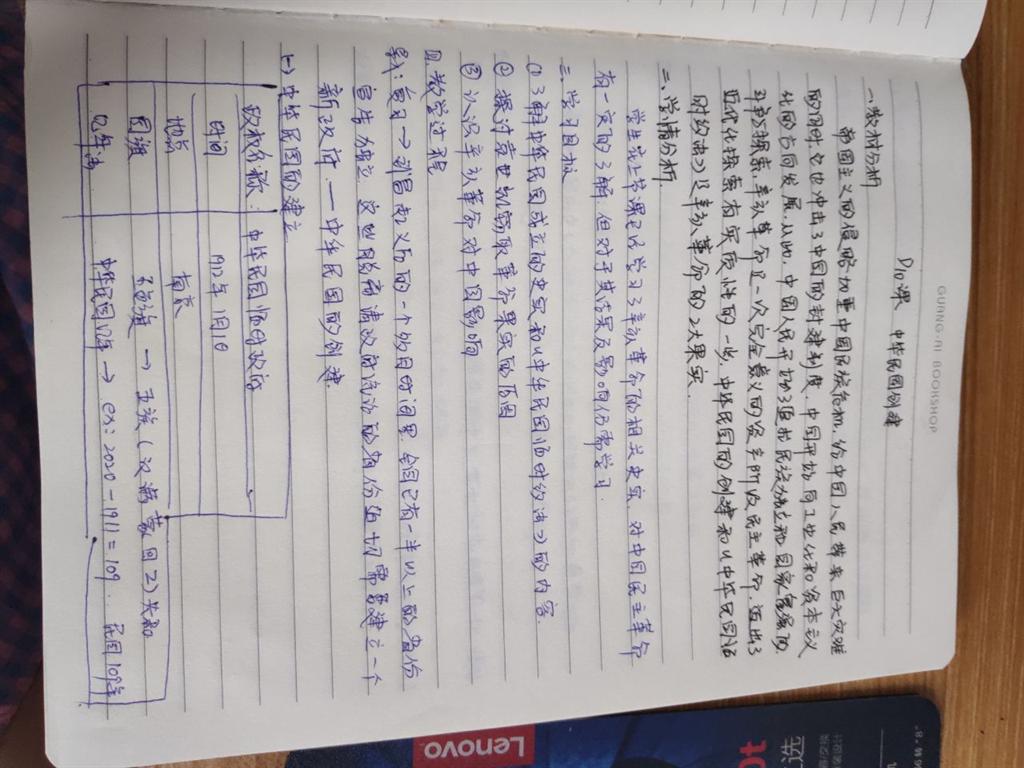 GUANG·AI BOOKSHOP
P10课 中华民国创建
一、教材分析
帝国主义的侵略加重中国民族危机，给中国人民带来巨大灾难
的同时，也冲击了中国的封建制度，中国开始向工业化和资本主义
化的方向发展，从此，中国人民开始了追求民族独立和国家富强的
探索，辛亥革命是一次完全意义的资产阶级民主革命，迈出了
近代化探索有实质性的一步，中华民国的创建和《中华民国临
时约法》是辛亥革命的2大果实.
二、学情分析.
学生先上节课已学习了辛亥革命的相关史实，对中国民主革命
有一定的了解，但对于其结果及影响仍需学习.
三、学习目标
① 了解中华民国成立的史实和《中华民国临时约法》的内容.
② 探讨袁世凯窃取革命果实的原因
③ 认识辛亥革命对中国影响
四、教学过程
导：复习 → 武昌起义后的一个的月时间里，全国已有一半以上的省份
宣告独立，这些脱离清政府统治的省份迫切需要建立一个
新政府——中华民国的创建.
(一) 中华民国的建立
政权名称： 中华民国临时政府
时间 1912年1月1日
地点 南京
国旗 五色旗 → 五族（汉满蒙回藏）共和
纪年法 中华民国纪年 → es: 2020-1911=109. 民国109年
Lenovo